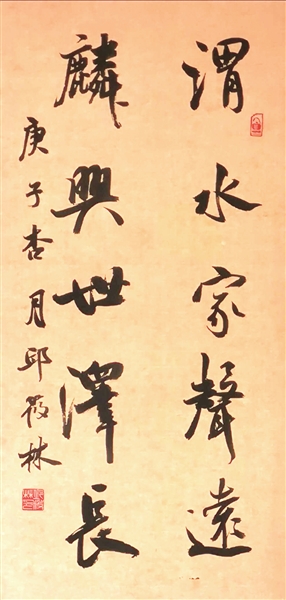 渭水家聲遠
麟興世澤長
庚子杏月邱筱林